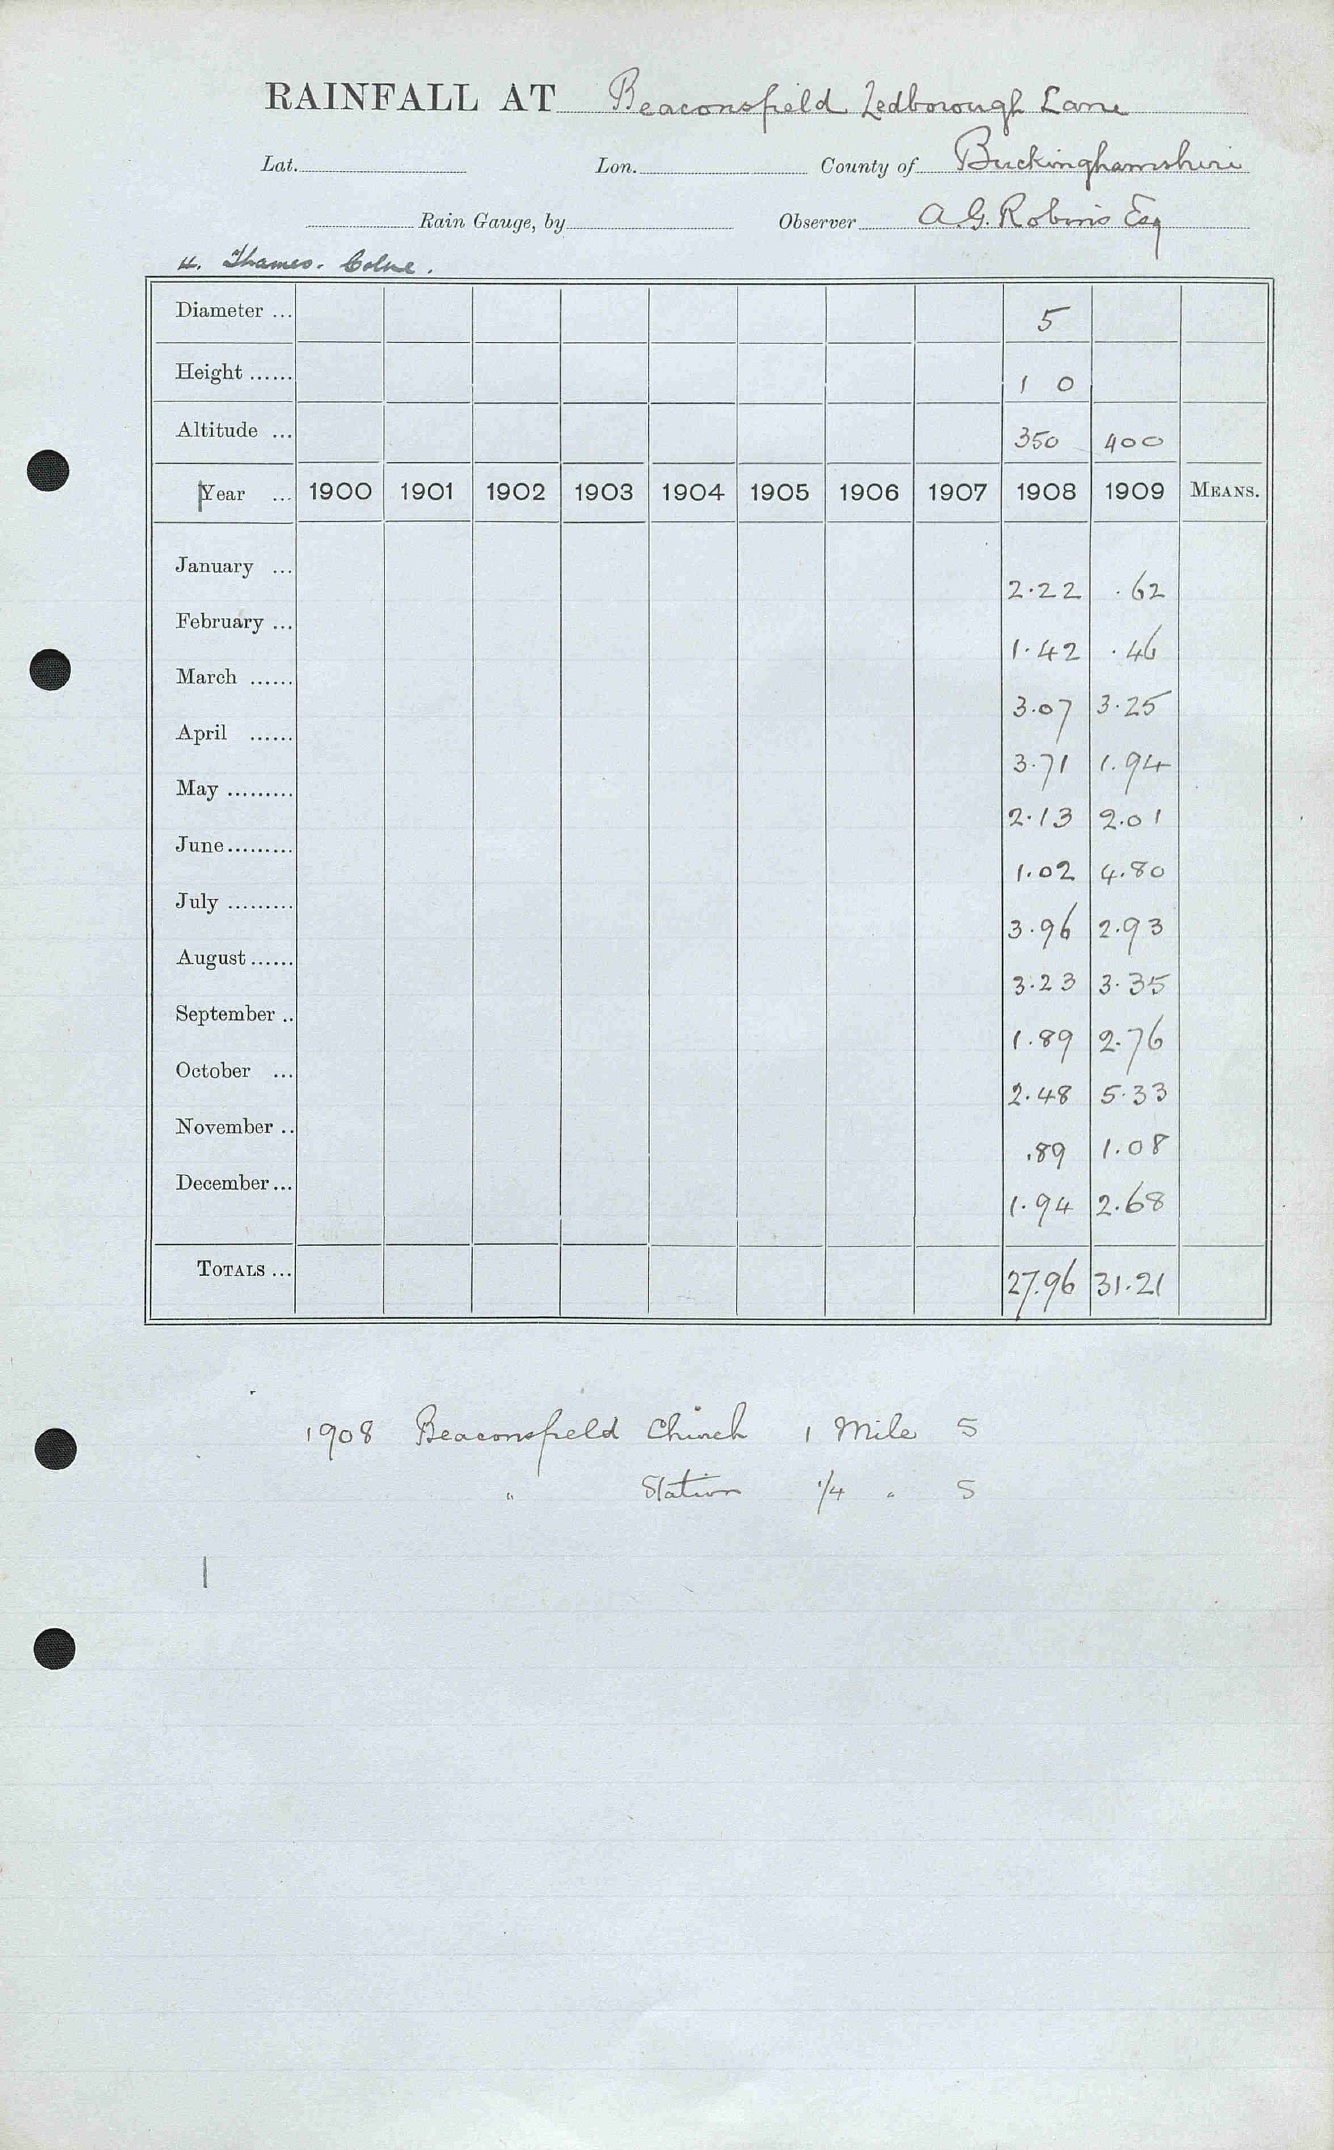 RAINFALL AT Beaconsfield Ledborough Lane
Lat. Lon. County of Buckinghamshire
Rain Gauge, by Observer A. G. Robins Esq
4. Thames. Colne.
Diameter ... 5
Height ...... 1 0
Altitude ... 350 400
Year ... 1900 1901 1902 1903 1904 1905 1906 1907 1908 1909 MEANS.
January ... 2.22 .62
February ... 1.42 .46
March ...... 3.07 3.25
April ...... 3.71 1.94
May ......... 2.13 2.01
June......... 1.02 4.80
July ......... 3.96 2.93
August ...... 3.23 3.35
September .. 1.89 2.76
October ... 2.48 5.33
November .. .89 1.08
December ... 1.94 2.68
TOTALS ... 27.96 31.21
1908 Beaconsfield Church 1 Mile S
" Station 1/4 " S